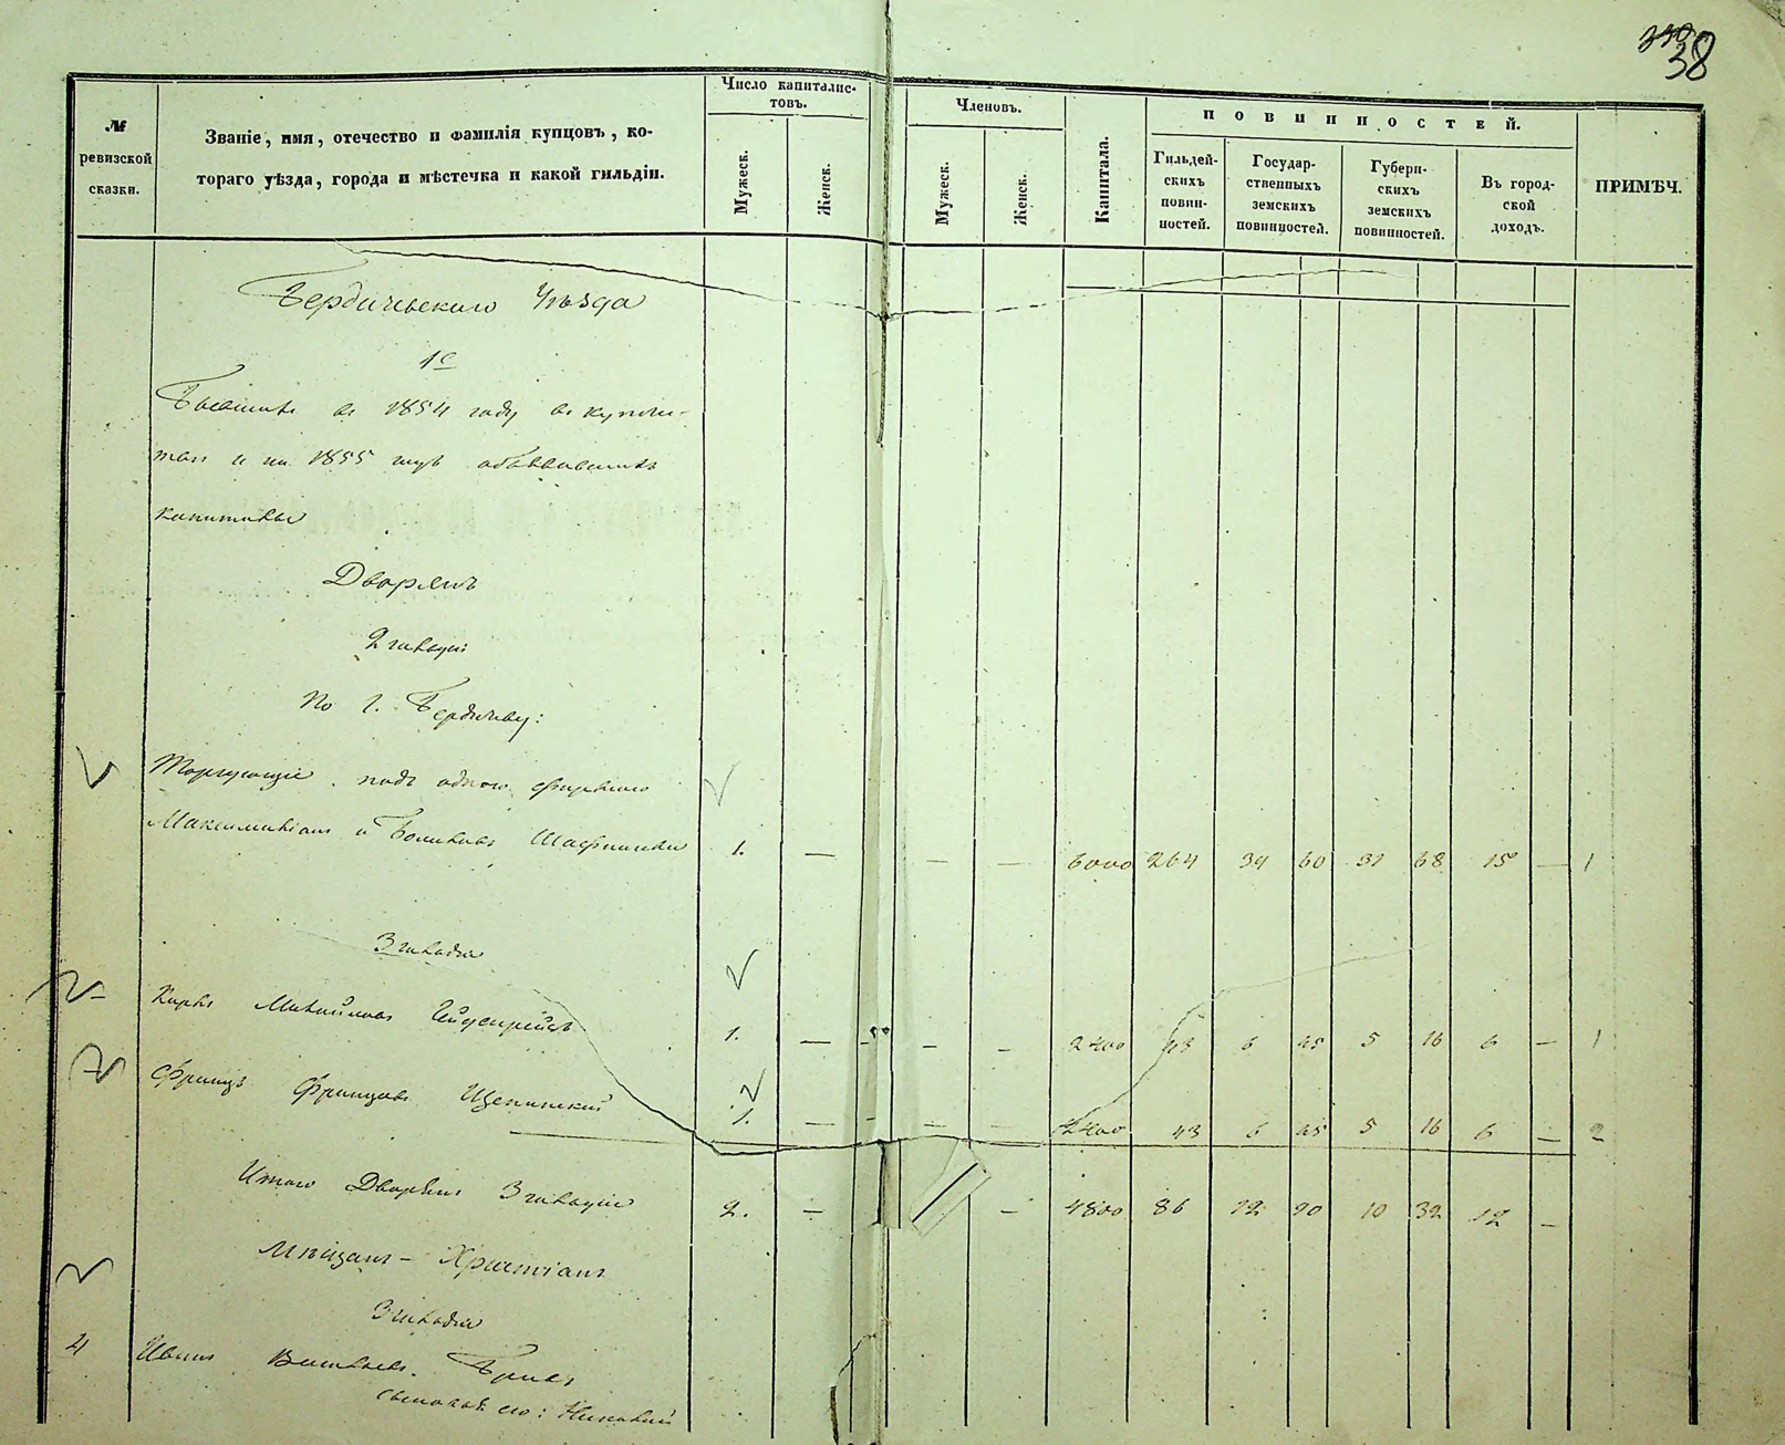 38
№ ревизской сказки.
Званіе, имя, отечество и фамилія купцовъ, ко-
тораго уѣзда, города и мѣстечка и какой гильдіи.
Число капиталис-
товъ.
Мужеск.
Женск.
Членовъ.
Мужеск.
Женск.
Капитала.
ПОВИННОСТЕЙ.
Гильдей-
скихъ
повин-
ностей.
Государ-
ственныхъ
земскихъ
повинностей.
Губерн-
скихъ
земскихъ
повинностей.
Въ город-
ской
доходъ.
ПРИМѢЧ.
Бердичевскаго Уѣзда
1е
Бывшихъ въ 1854 году въ купече-
на 1855 годъ объявившихъ
капиталы
Дворянъ
2 гильдіи
По г. Бердичеву:
Торгующіе подъ одною фирмою
Максимиліанъ и Шафнагели 1. — — — 6000 264 34 60 31 68 15 — 1
3 гильдіи
Карлъ 1. — — — 2400 43 6 45 5 16 6 — 1
Францъ Францовъ 1. — — — 2400 43 6 45 5 16 6 — 2
Итого Дворянъ 3 гильдіи 2. — — 4800 86 12 90 10 32 12 —
Мѣщанъ - Христіанъ
3 гильдіи
4 Иванъ Васильевъ
сыновья его: Николай